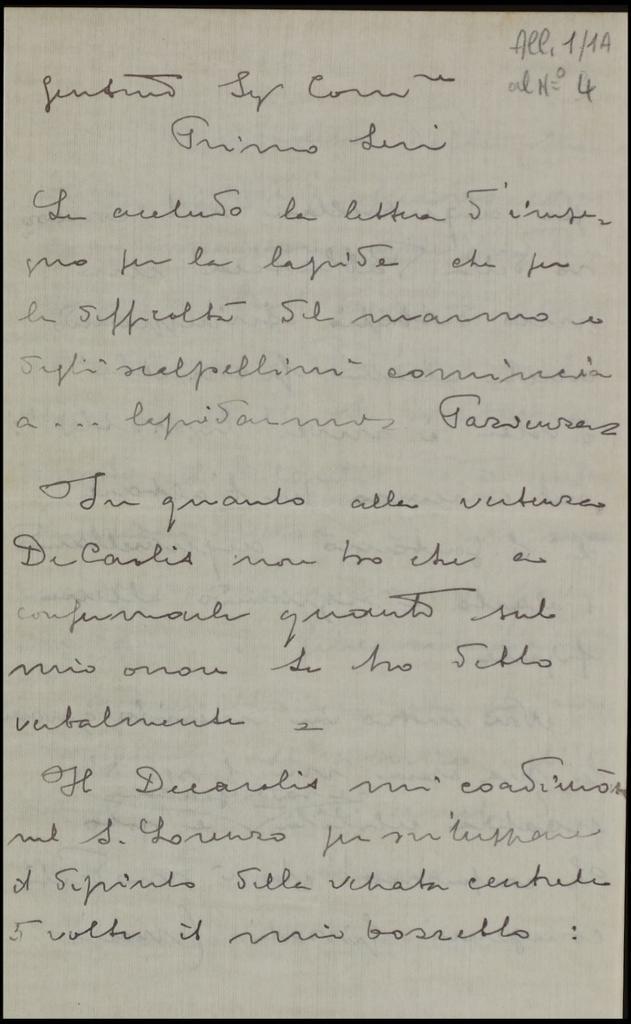 All. 1/1A
al N.º 4
Gentmo Sig Comre
Primo Levi
Le accludo la lettera d'impe=
gno per la lapide che per
le difficoltà del marmo e
degli scalpellini comincia
a ... lapidarmi
In quanto alla vertenza
De Carolis non ho che a
confermarle quanto sul
mio onore Le ho detto
verbalmente =
Il Decarolis mi coadiuvò
nel S. Lorenzo per sviluppare
il dipinto della vetrata centrale
5 volte il mio bozzetto :